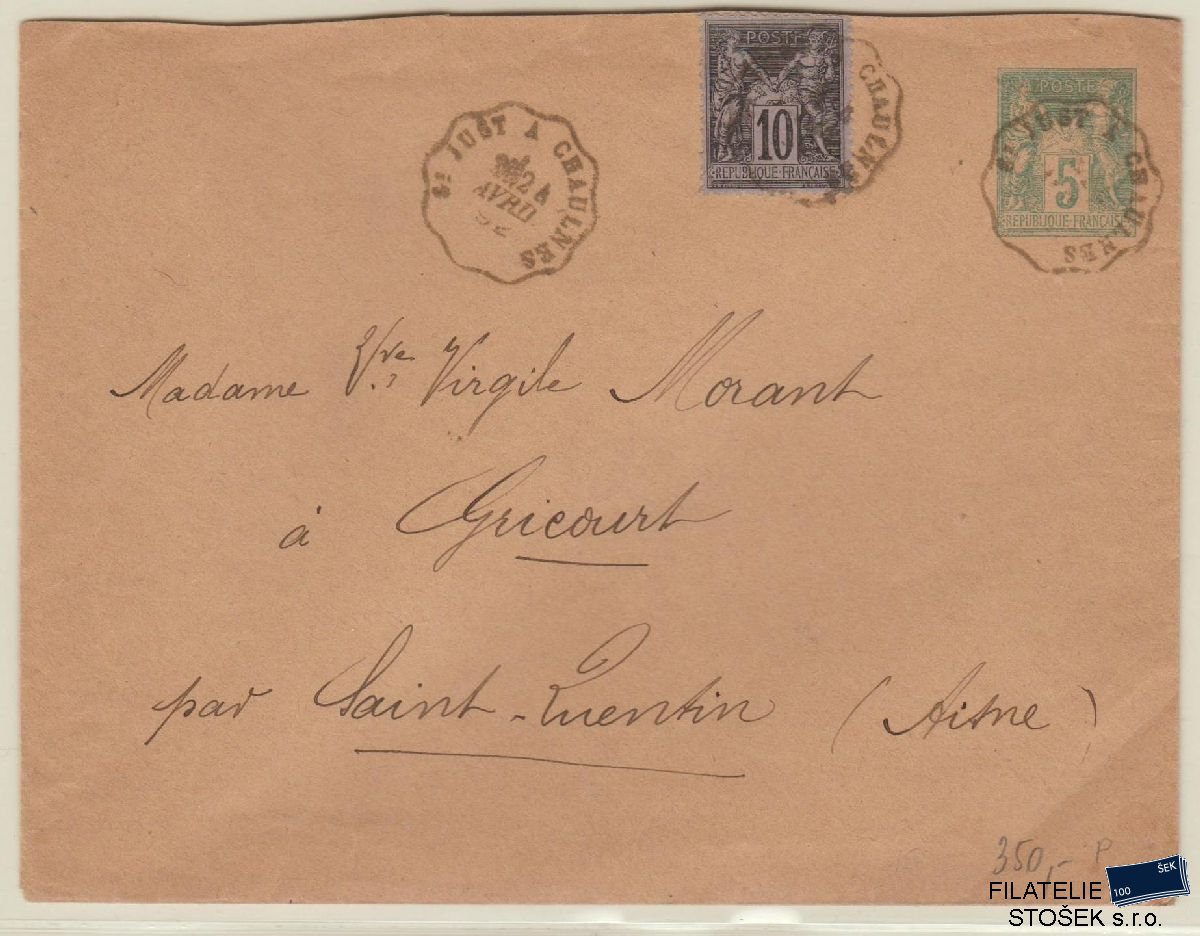 POSTE
10
REPUBLIQUE FRANÇAISE
CHAULNES
POSTE
5
REPUBLIQUE FRANÇAISE
St JUST A CHAULNES
St JUST A CHAULNES
AVRIL
Madame Vve Virgile Morant
à Gricourt
par Saint-Quentin (Aisne)
350,- P
ŠEK
100
FILATELIE
STOŠEK s.r.o.